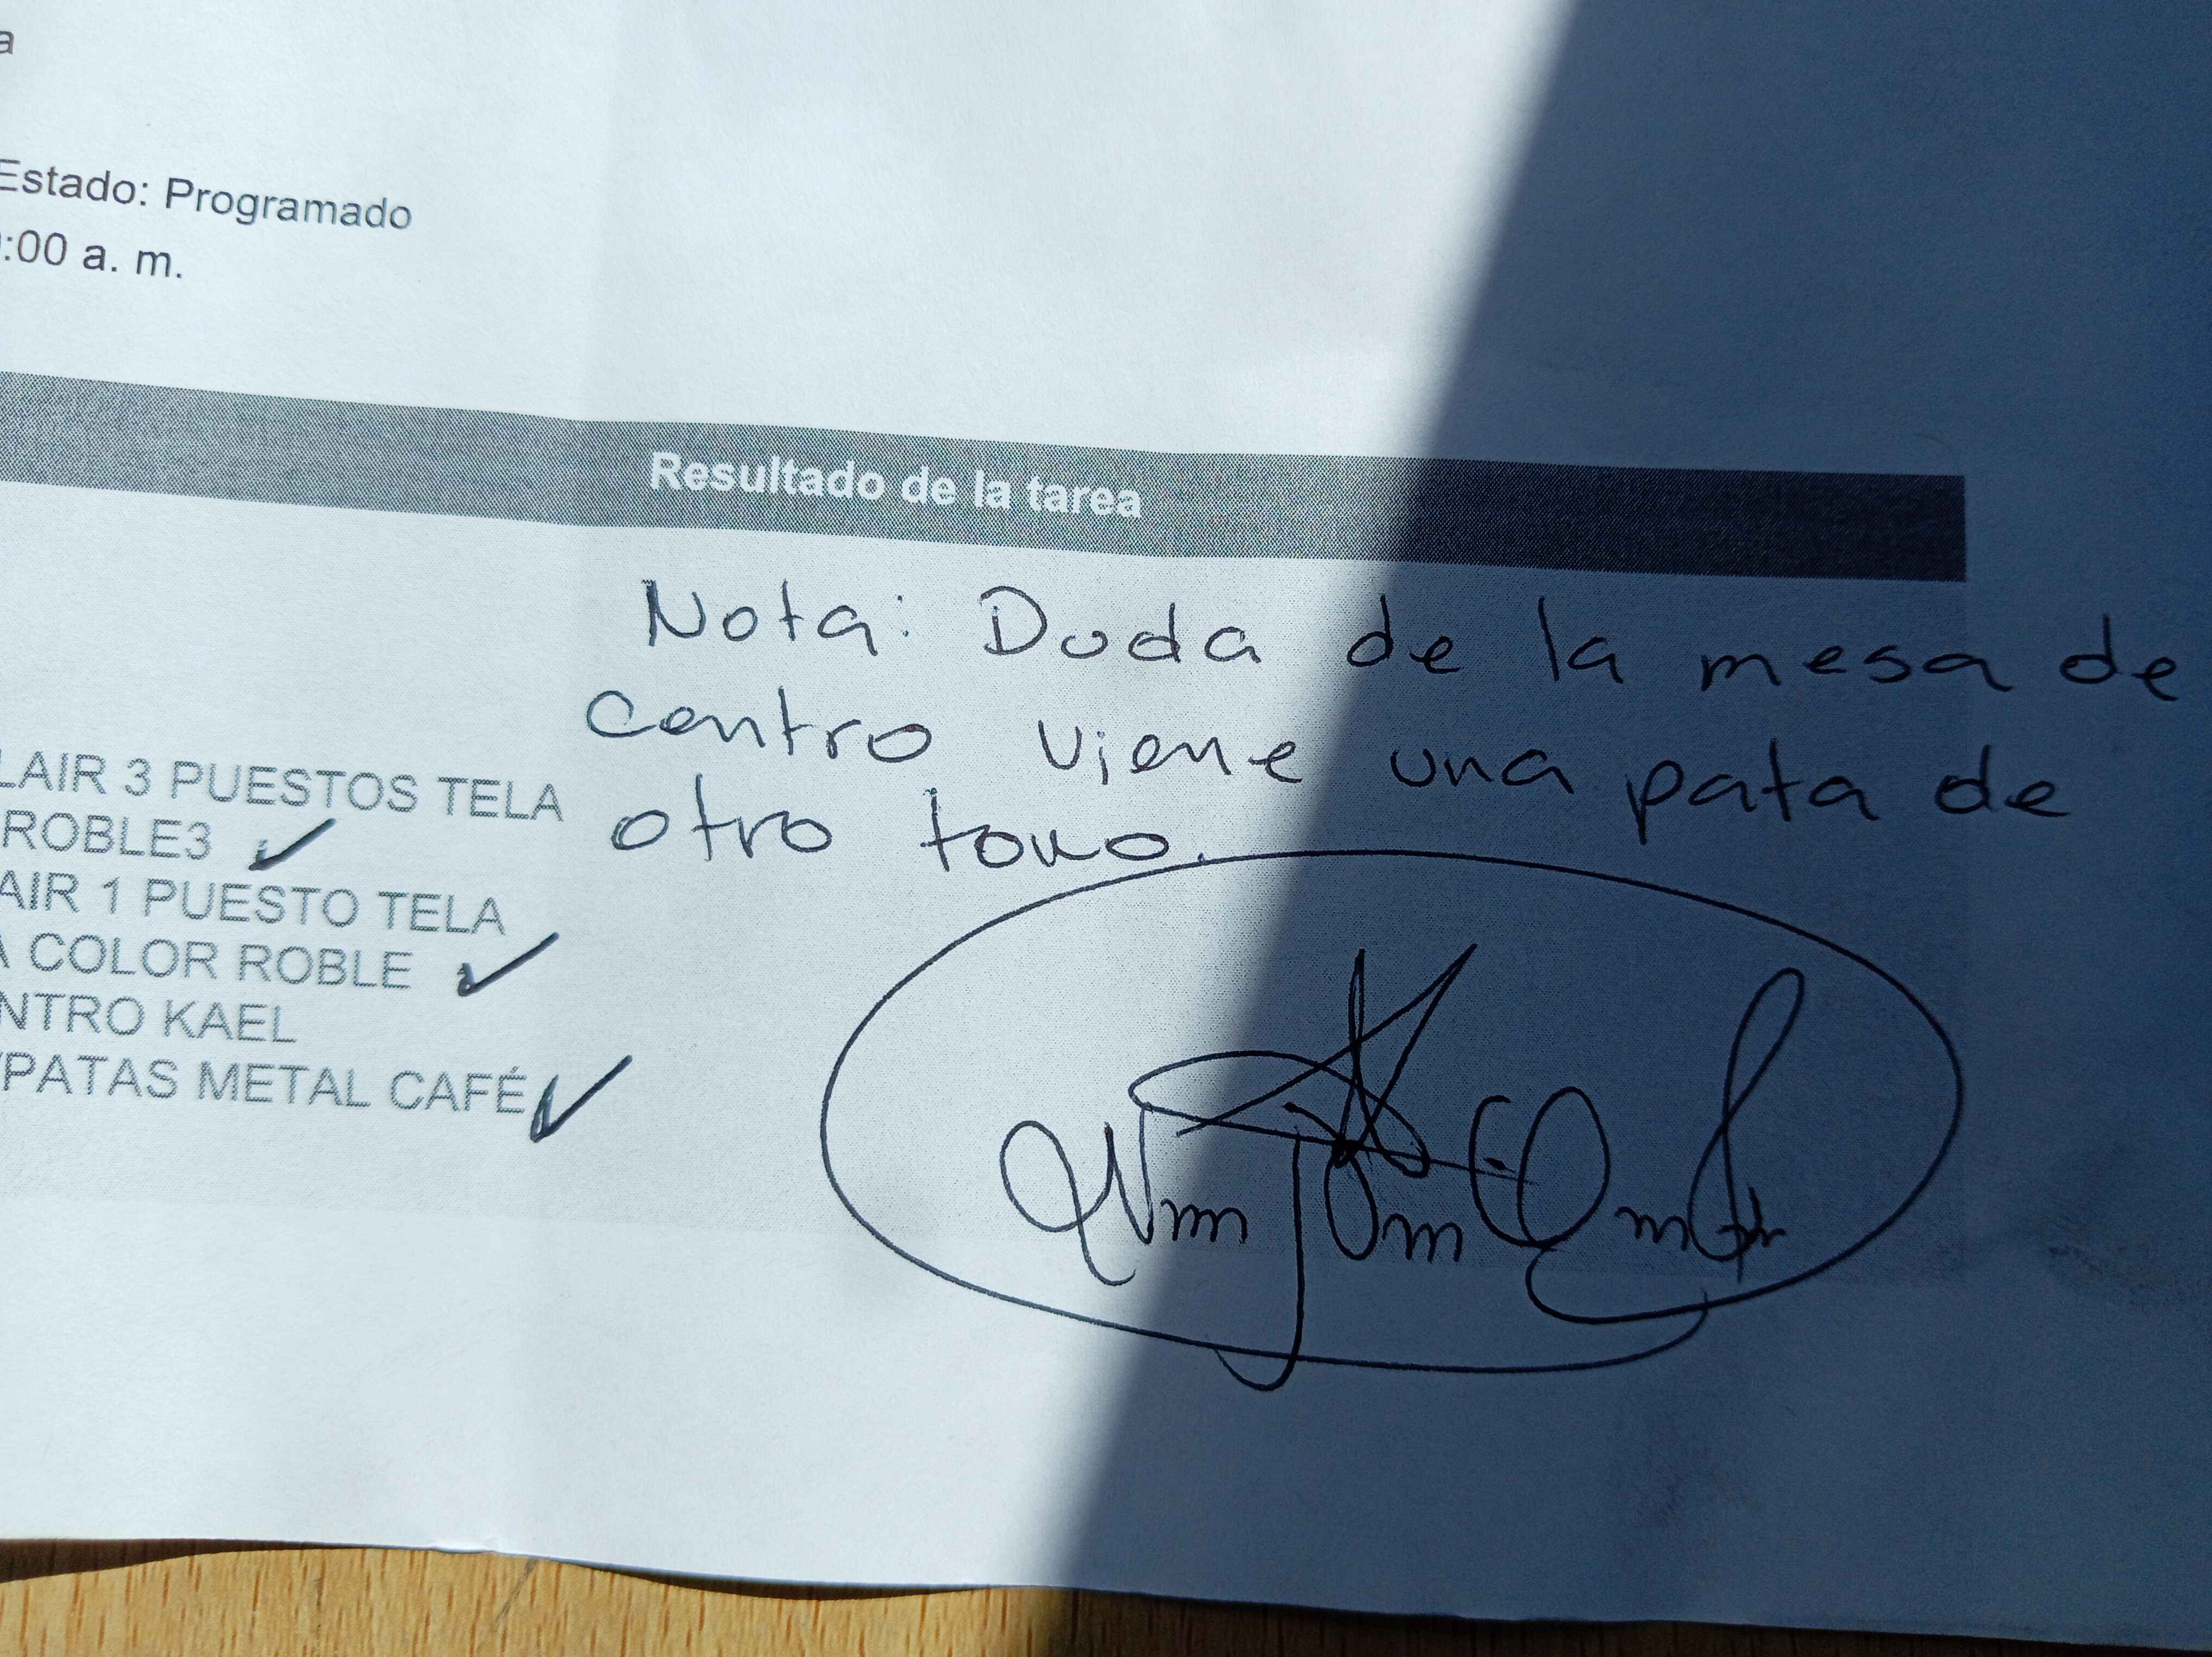 a
Estado: Programado
:00 a. m.
Resultado de la tarea
Nota: Duda de la mesa de
centro viene una pata de
otro tono.
LAIR 3 PUESTOS TELA
ROBLE3
AIR 1 PUESTO TELA
A COLOR ROBLE
NTRO KAEL
/PATAS METAL CAFÉ